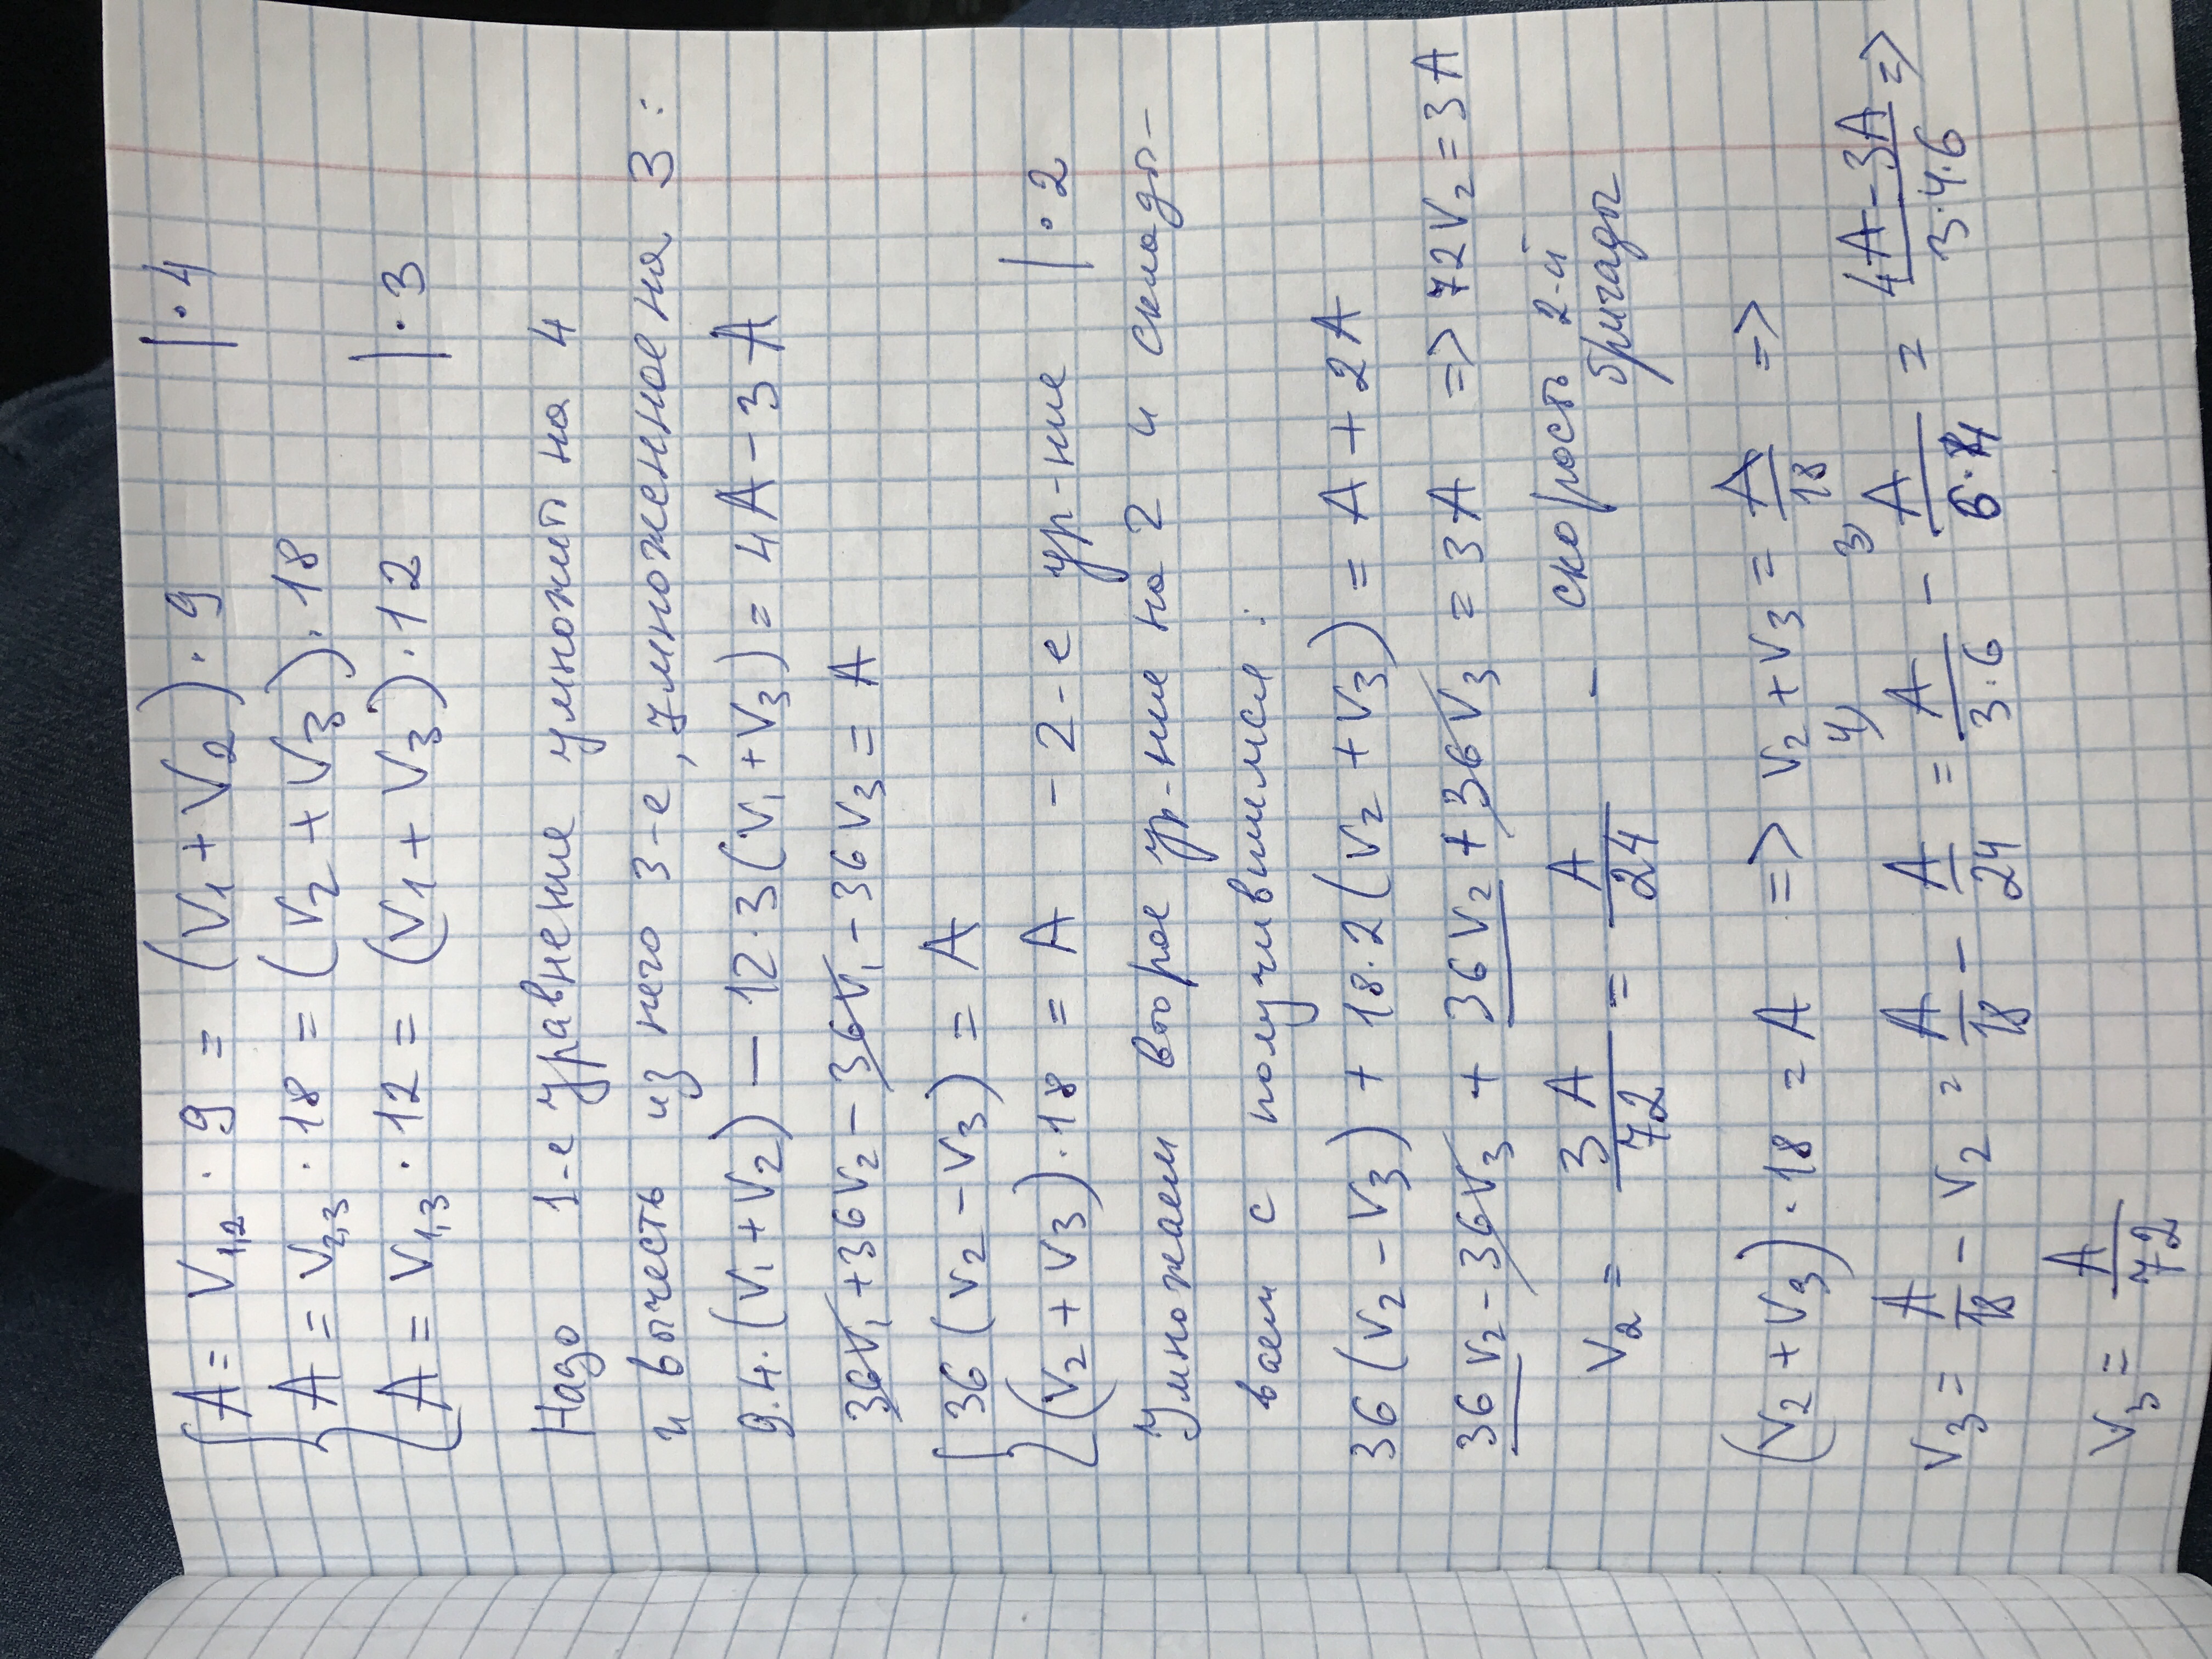 A = V1,2 · 9 = (V1 + V2) · 9 | · 4
A = V2,3 · 18 = (V2 + V3) · 18
A = V1,3 · 12 = (V1 + V3) · 12 | · 3
Надо 1-е уравнение умножит на 4
и вычесть из него 3-е, умноженное на 3 :
9·4·(V1 + V2) — 12·3(V1 + V3) = 4A − 3A
36V1 + 36V2 − 36V1 − 36V3 = A
36(V2 − V3) = A
(V2 + V3)·18 = A - 2-е ур-ние | · 2
Умножаем второе ур-ние на 2 и склады-
ваем с получившимся :
36(V2 − V3) + 18·2(V2 + V3) = A + 2A
36V2 − 36V3 + 36V2 + 36V3 = 3A => 72V2 = 3A
V2 = 3A/72 = A/24 - скорость 2-й
бригады
(V2 + V3)·18 = A => V2 + V3 = A/18 =>
4) 3)
V3 = A/18 − V2 = A/18 − A/24 = A/3·6 − A/6·4 = 4A−3A/3·4·6 =>
V3 = A/72